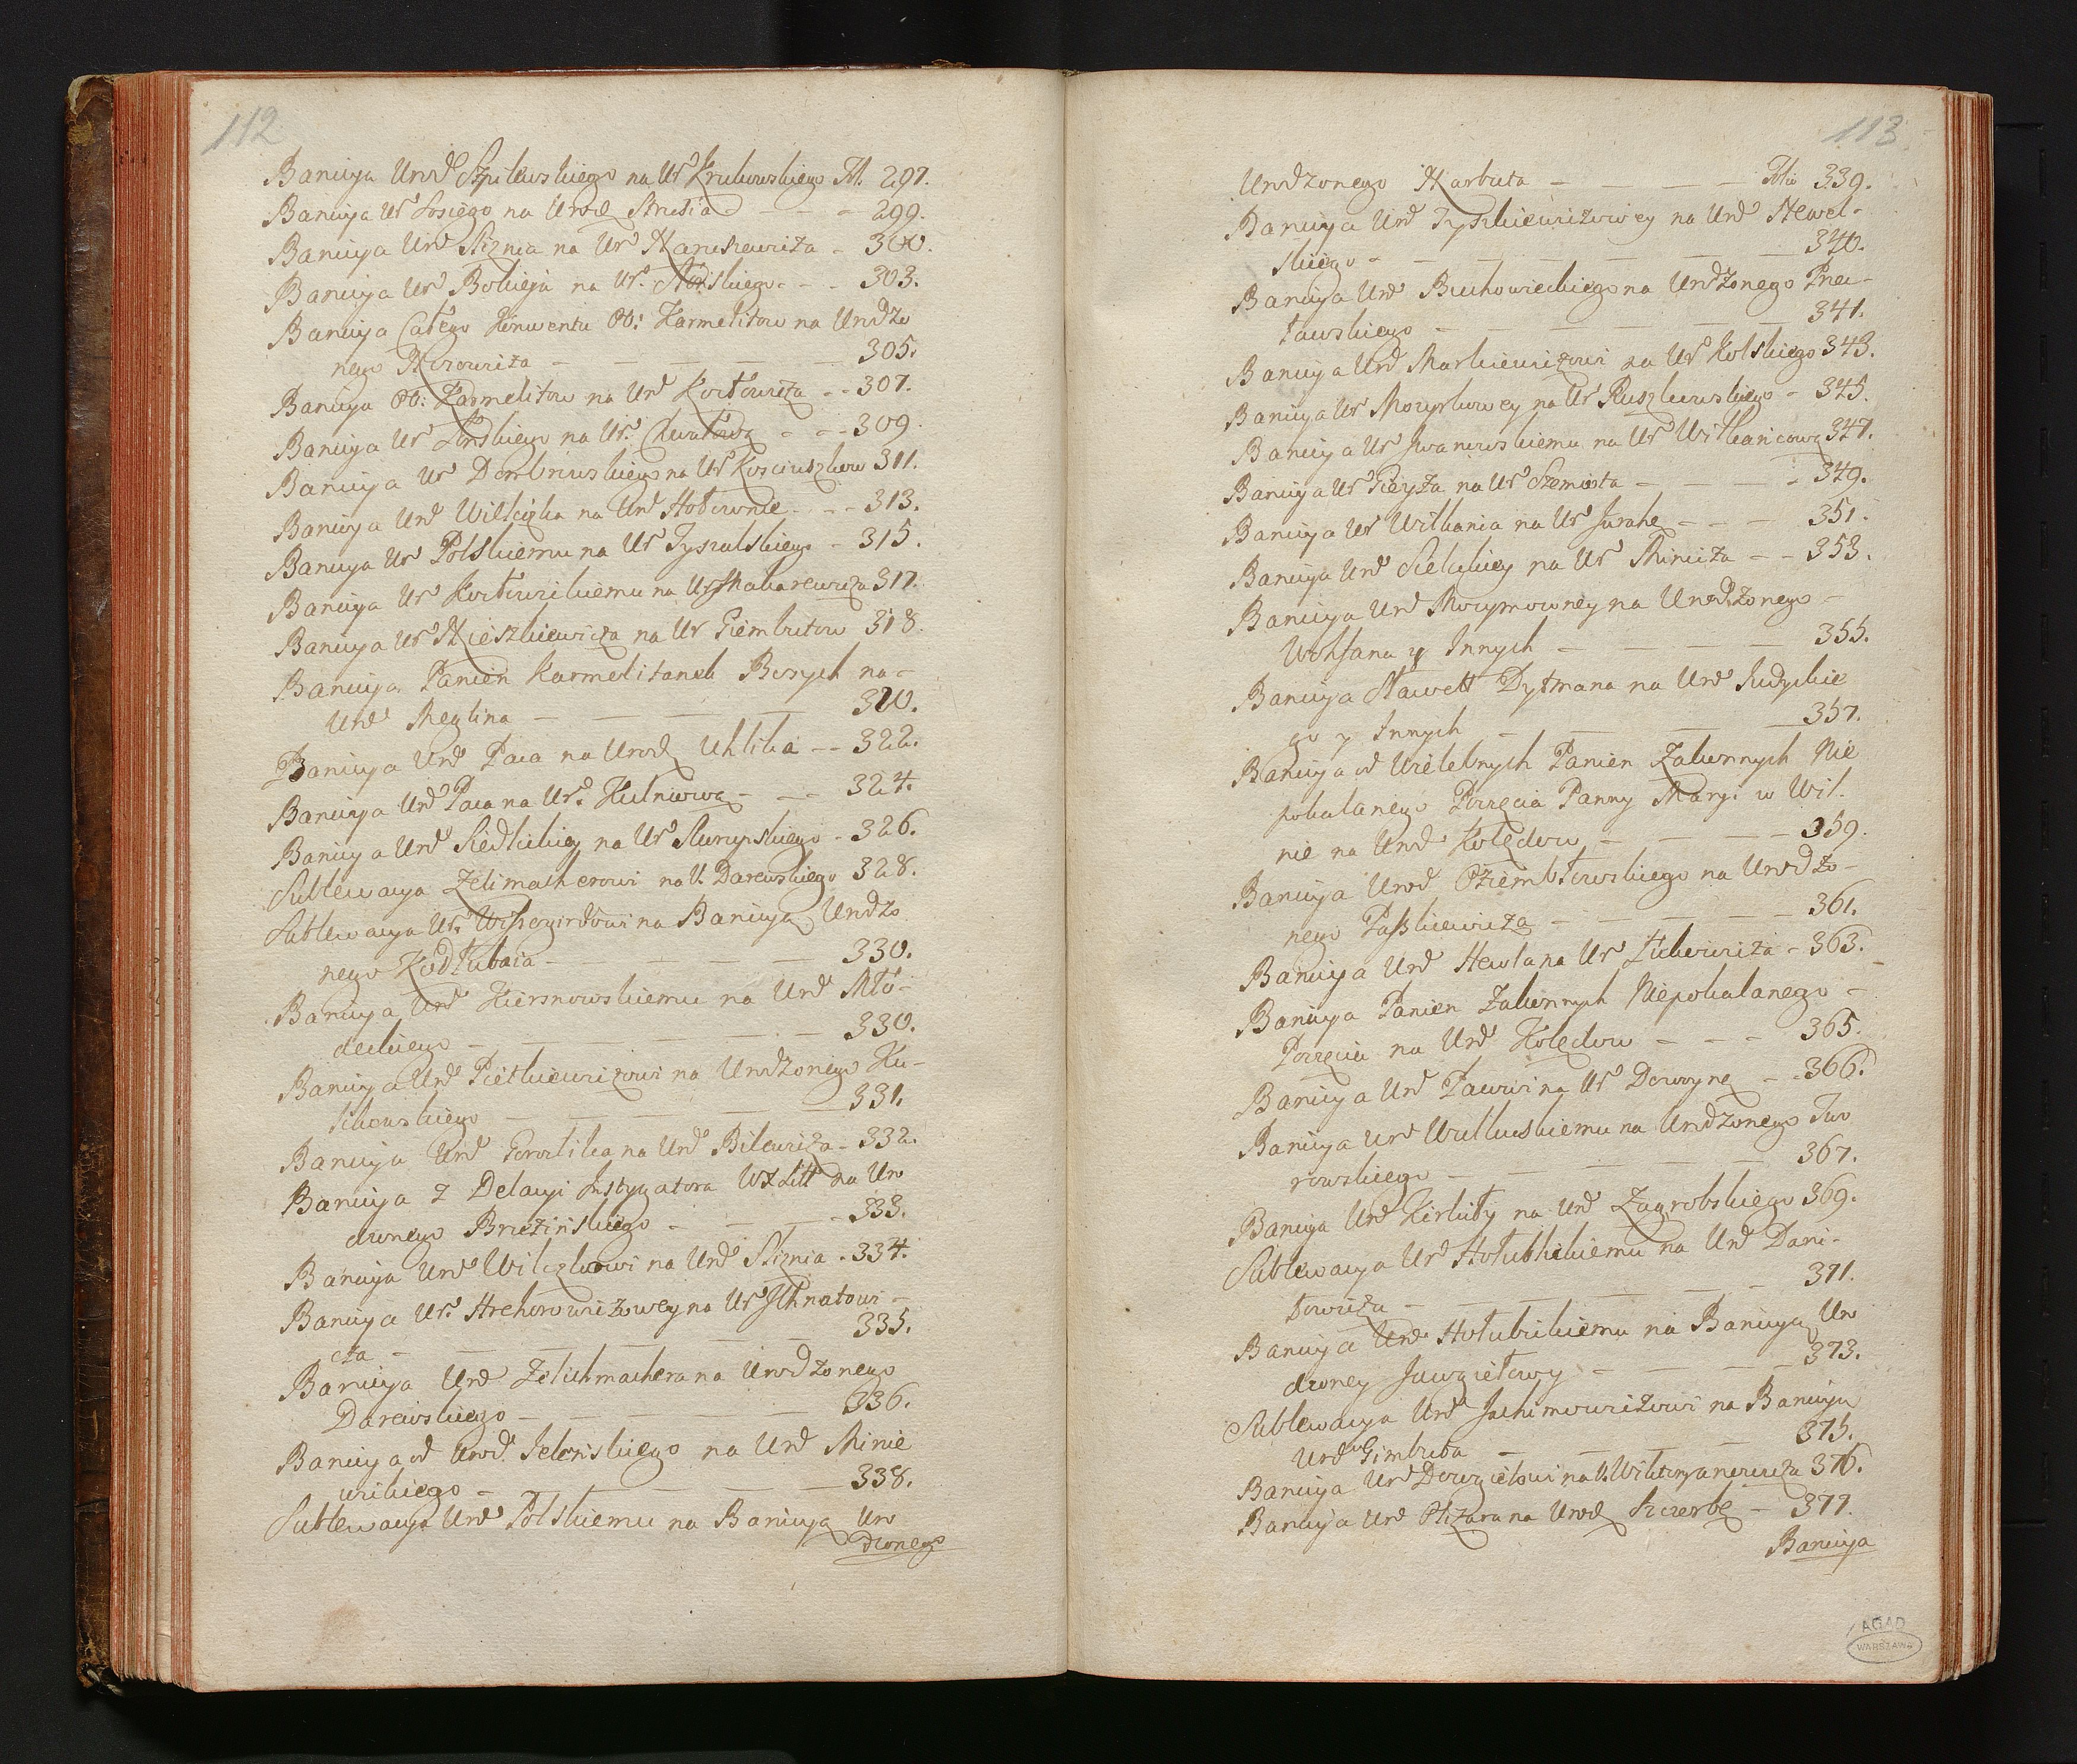 112
Banicya Urod Szpilewskiego na Ur Krukowskiego Fol. 297.
Banicya Ur Łosiego na Urod Strusia - - - 299.
Banicya Urd Sliznia na Ur Naruszewicza - 300.
Banicya Ur Bokieja na Ur. - - - 303.
Banicya Całego Konwentu OO: Karmelitow na Urodzo
nego - - - - - 305.
Banicya OO: Karmelitow na Urd Kortowicza - - 307.
Banicya Ur na Ur. - - - 309.
Banicya Ur Dombrowskiego na Ur Kosciuszkow 311.
Banicya Urd Wilczka na Urd Hołownie - - - 313.
Banicya Ur Polskiemu na Ur Tyszulskiego - 315.
Banicya Ur na Ur Makarewicza 317.
Banicya Ur Mieszkiewicza na Ur Giembutow 318.
Banicya Panien Karmelitanek Bosych na -
Urd Meglina - - - - 320.
Banicya Urd Paca na Urod Uhlika - - 322.
Banicya Urd Paca na Ur. - - - 324.
Banicya Urd Siedlickiey na Ur Skurupskiego - 326.
Sublewacya Zelimacherowi na U. Darewskiego 328.
Sublewacya Ur. Wissogirdowi na Banicyą Urodzo
nego Kodłubaia - - - - 330.
Banicya Urd Kiersnowskiemu na Urd Mło -
deckiego - - - - - 330.
Banicya Urd Pietkiewiczowi na Urodzonego Ku -
likowskiego - - - - - 331.
Banicya Urd na Urd Bilewicza - 332.
Banicya z Delacyi Instygatora WXLitt na Uro
dzonego Brzezińskiego - - - - 333.
Banicya Urd Wilczkowi na Urd Sliznia - 334.
Banicya Ur. Hrehorowiczowey na Ur Jhnatowi -
cza - - - - - 335.
Banicya Urd Zelichmachera na Urodzonego
Darewskiego - - - - - 336.
Banicya od Urod. Jelenskiego na Urd Minie
wickiego - - - - 338.
Sublewacya Urd Polskiemu na Banicyą Uro
dzonego
113
Urodzonego Narbuta - - - - Folio 339.
Banicya Urd Tyszkiewiczowey na Urd Newel -
skiego - - - - - 340.
Banicya Urd Buchowieckiego na Urodzonego Prze -
tawskiego - - - - - 341.
Banicya Urd Markiewiczowi na Ur Kolskiego 343.
Banicya Ur na Ur Ruszkowskiego - 345.
Banicya Ur Jwanowskiemu na Ur Witkańcową 347.
Banicya Ur Gieyża na Ur Szemiota - - - - 349.
Banicya Ur Witkania na Ur Jurahę - - - 351.
Banicya Urd Sielickiey na Ur Minicza - - 353.
Banicya Urd na Urodzonego -
Wohsana y Innych - - - - 355.
Banicya Sławett Dytmana na Urd Sudyckie
go y Innych - - - - 357.
Banicya od Wielebnych Panien Zakonnych Nie
pokalanego Poczęcia Panny Maryi w Wil.
nie na Urod Kolędow - - - - 359.
Banicya Urod Oziembłowskiego na Urodzo -
nego Paszkiewicza - - - - 361.
Banicya Urd Hewla na Ur Łukowicza - 363.
Banicya Panien Zakonnych Niepokalanego -
Poczęcia na Urd Kolędow - - - 365.
Banicya Urd na Ur Dowoynę - - 366.
Banicya Urd na Urodzonego Two
rowskiego - - - - - 367.
Banicya Urd Kierbuty na Urd Zagrobskiego 369.
Sublewacya Ur Hołubickiemu na Urd Dani -
łowicza - - - - - 371.
Banicya Urd Hołubickiemu na Banicyą Uro
dzoney Jawgiełowy - - - - 373.
Sublewacya Urd Jachimowiczowi na Banicyą
Urd Gimbuta - - - - 375.
Banicya Urd Dowgiełowi na U. 376.
Banicya Urd Olizara na Urod Szczerbę - 377.
Banicya
AGAD
WARSZAWA